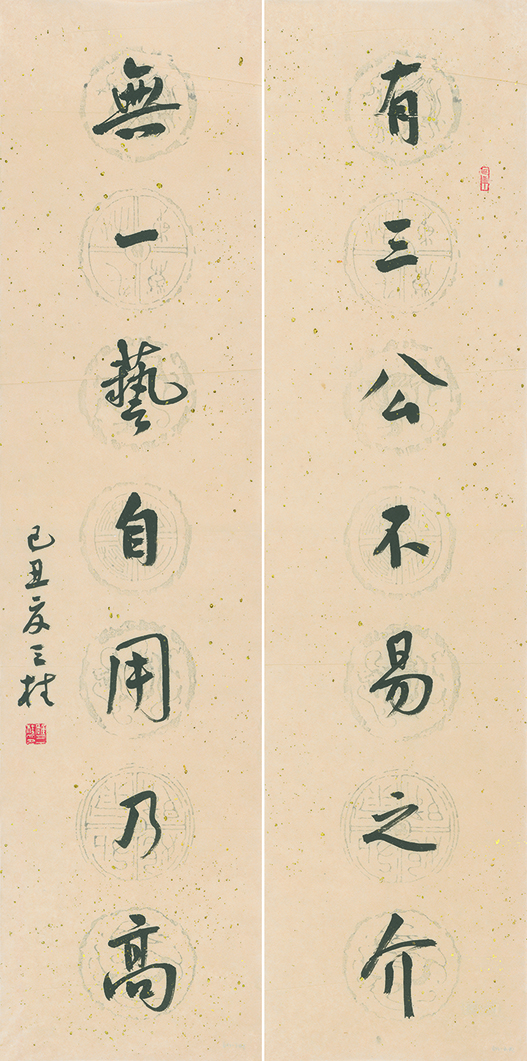 有三公不易之介
無一藝自用乃高
己丑夏三桂